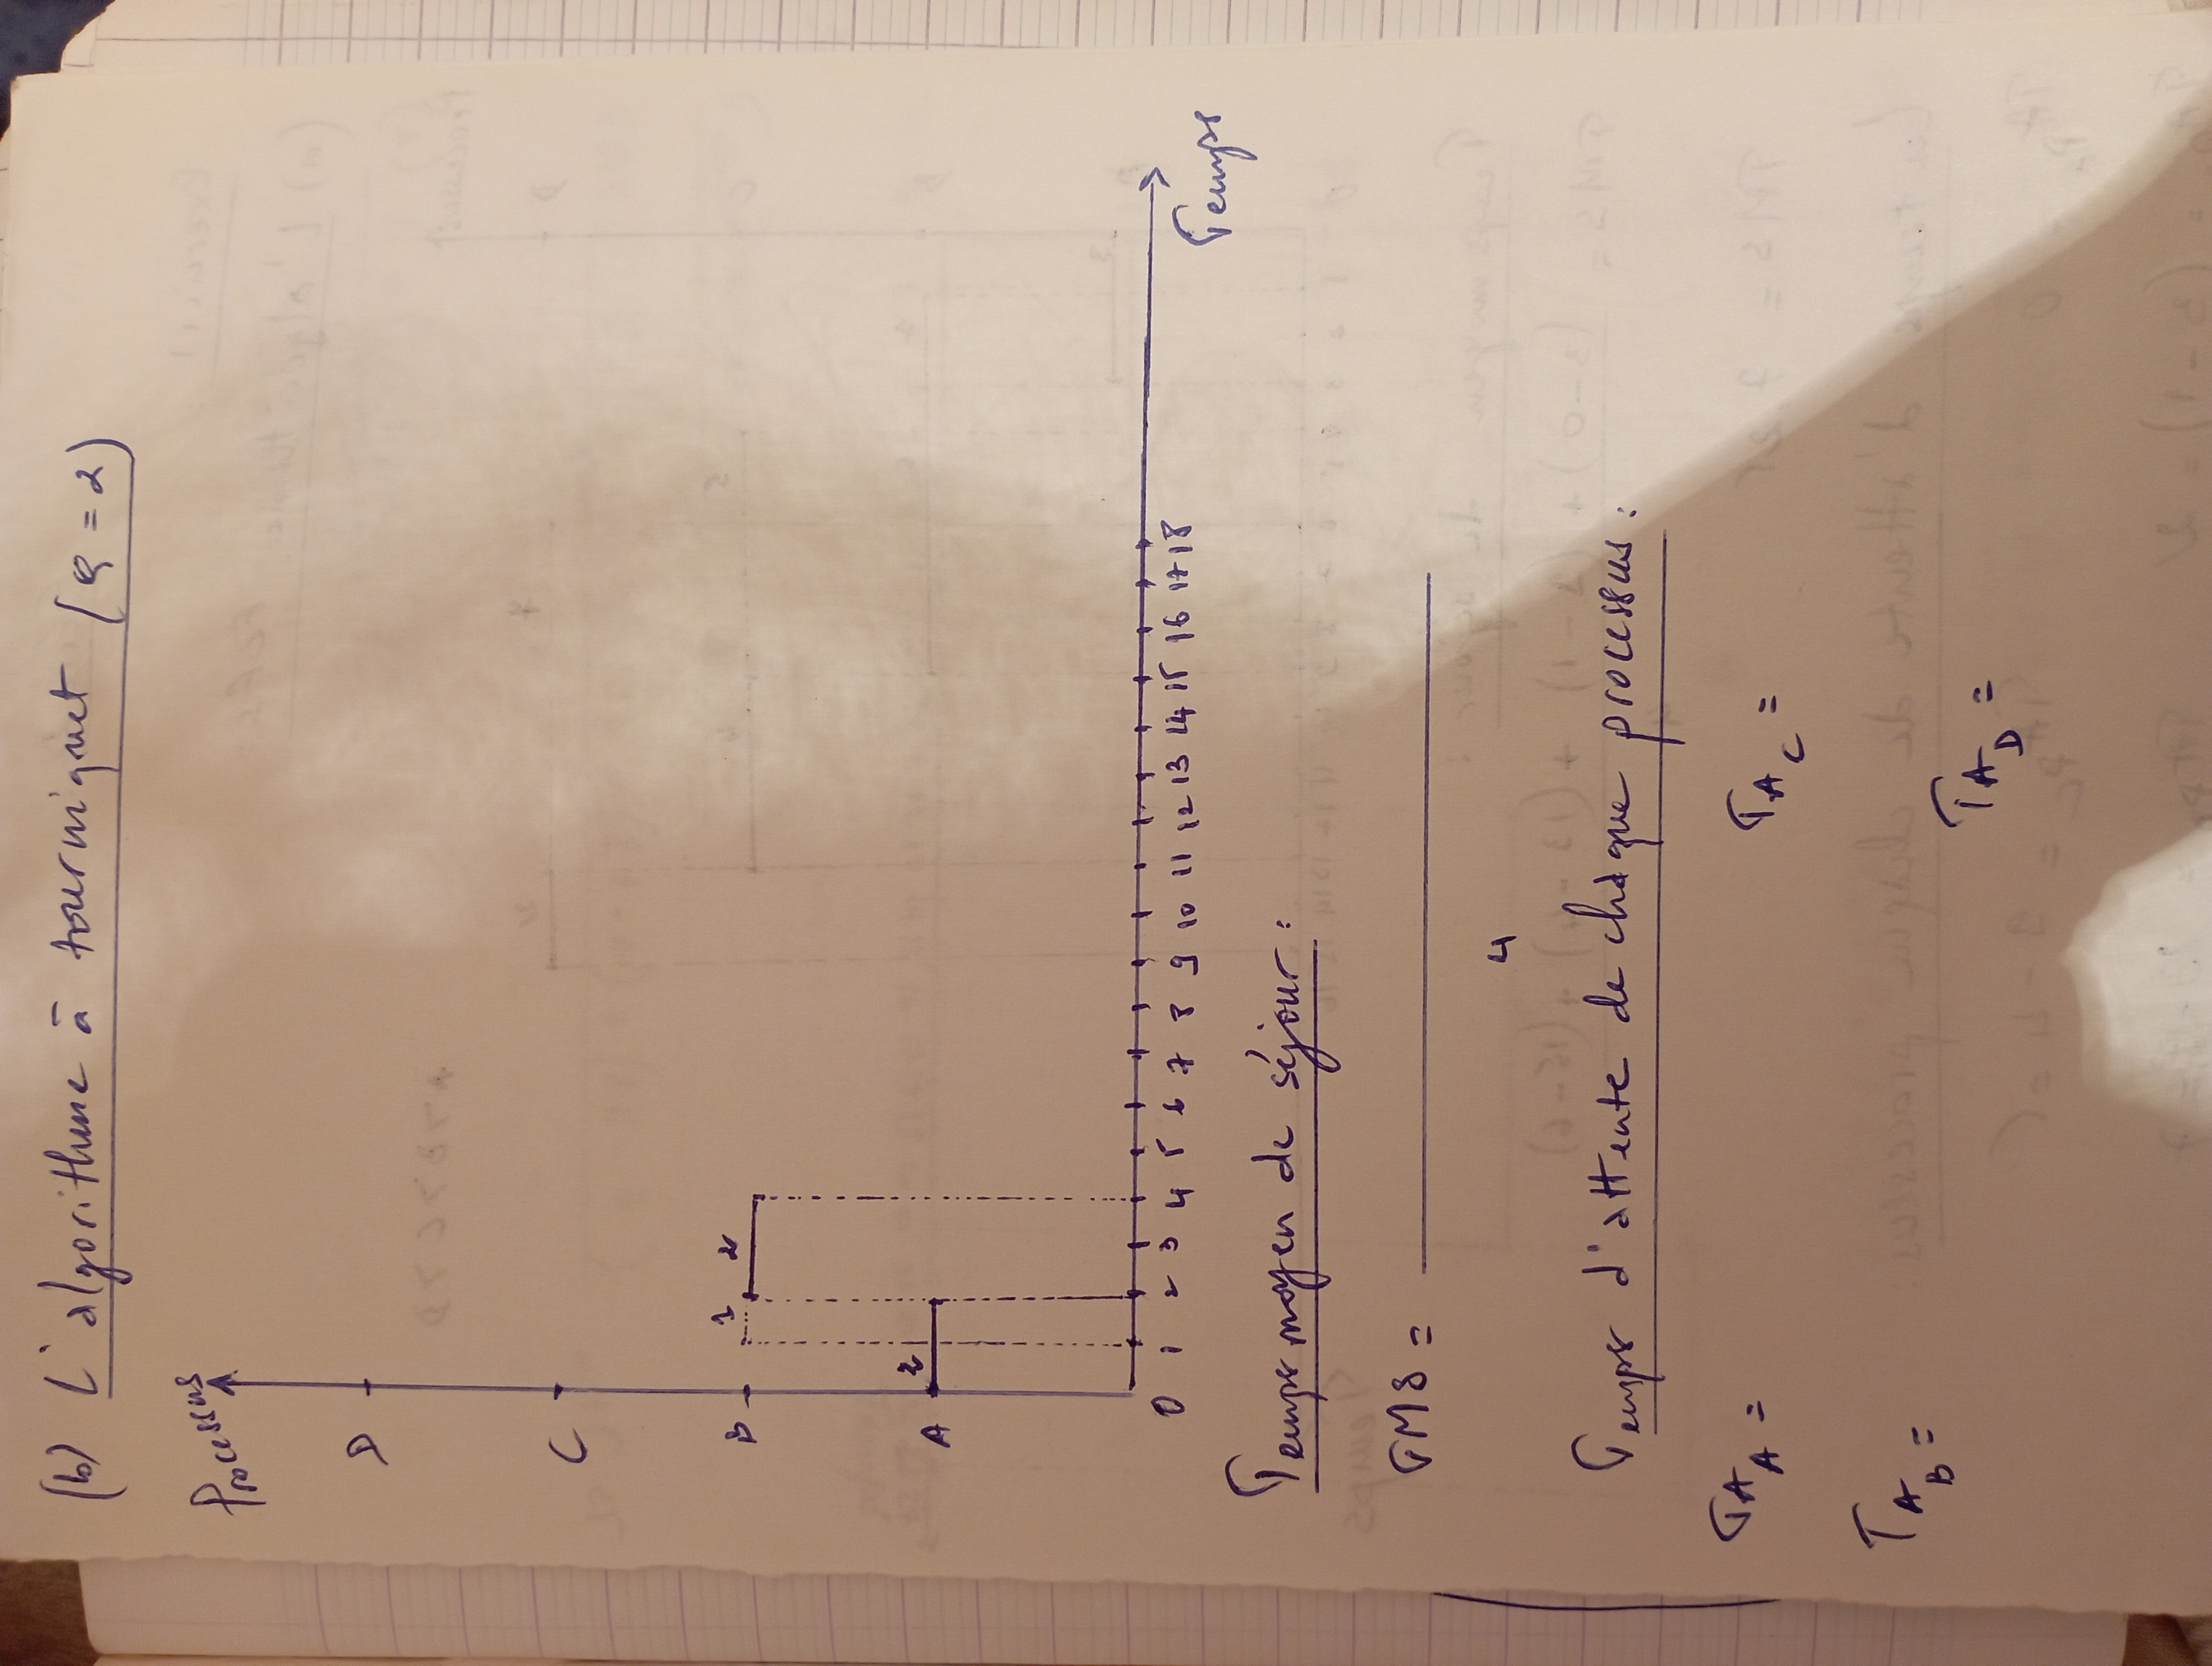 (b) L'algorithme à tourniquet (Q = 2)
Processus
D
C
B
1 2
A
2
0 1 2 3 4 5 6 7 8 9 10 11 12 13 14 15 16 17 18
Temps
Temps moyen de séjour :
TMS =
4
Temps d'attente de chaque processus :
TA_A =
TA_C =
TA_B =
TA_D =